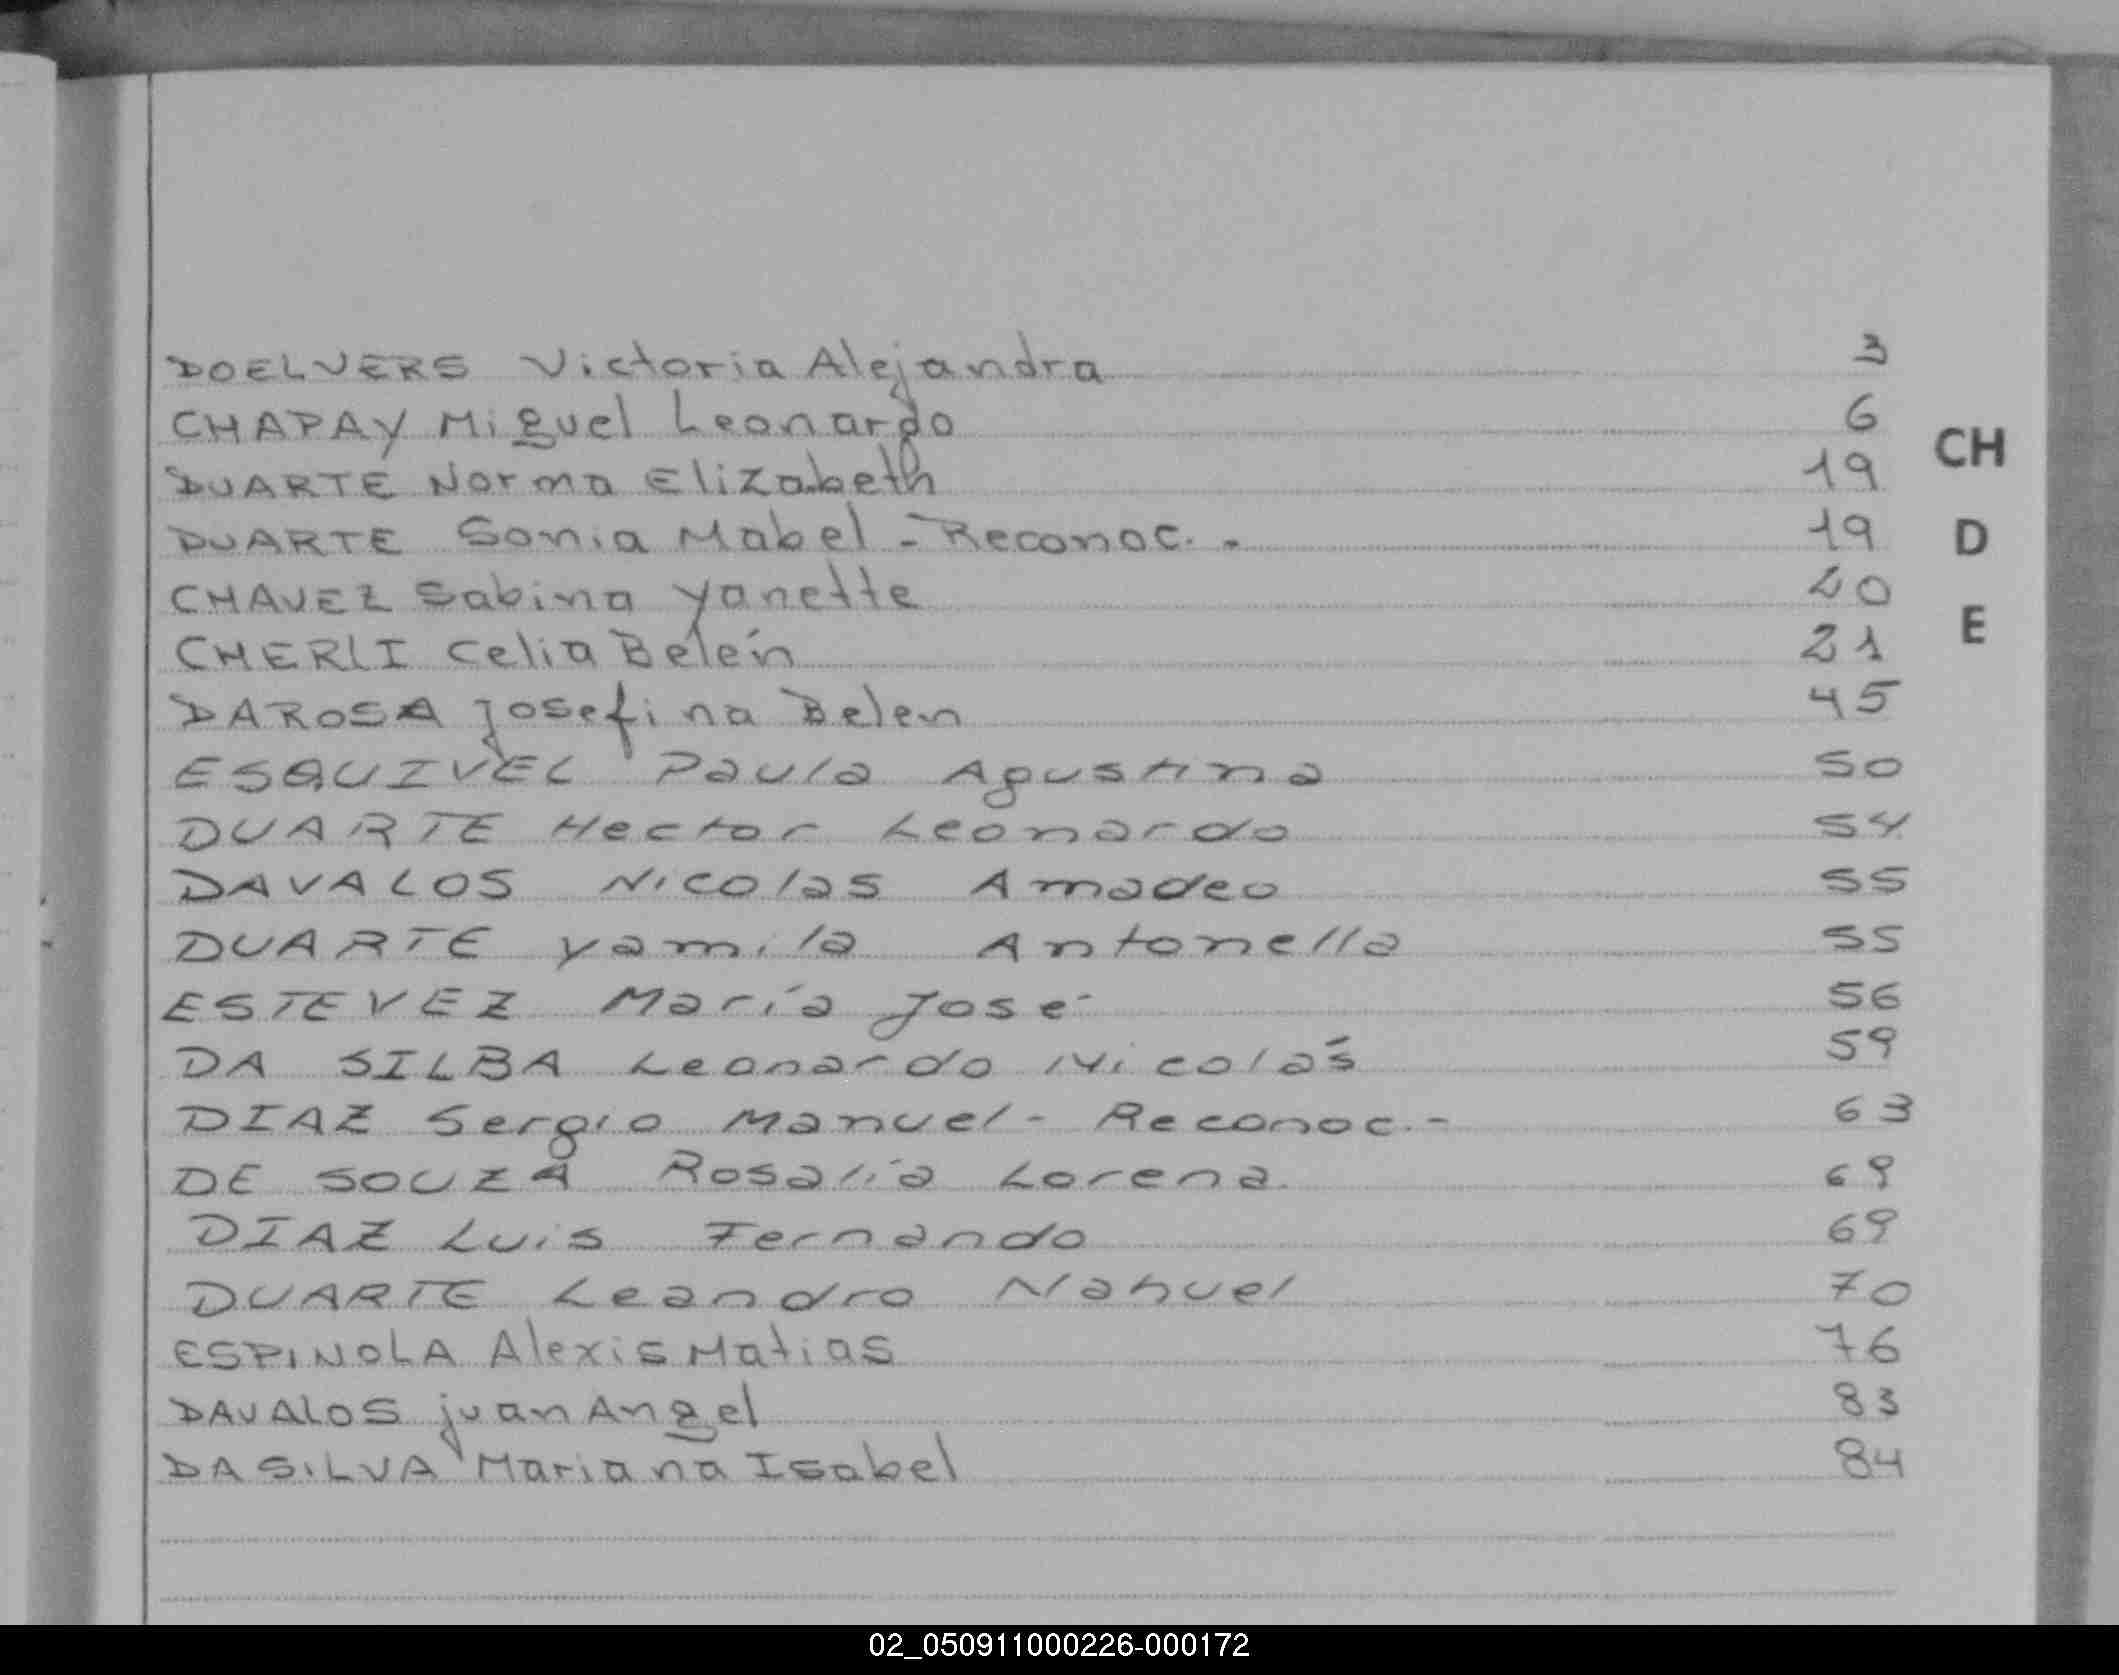 DOELVERS Victoria Alejandra 3
CHAPAY Miguel Leonardo 6
CH
DUARTE Norma Elizabeth 19
DUARTE Sonia Mabel - Reconoc. - 19
D
CHAVEZ Sabina Yanette 20
CHERLI Celia Belén 21
E
DAROSA Josefina Belen 45
ESQUIVEL Paula Agustina 50
DUARTE Hector Leonardo 54
DAVALOS Nicolas Amadeo 55
DUARTE Yamila Antonella 55
ESTEVEZ María José 56
DA SILBA Leonardo Nicolás 59
DIAZ Sergio Manuel - Reconoc. - 63
DE SOUZA Rosalía Lorena 69
DIAZ Luis Fernando 69
DUARTE Leandro Nahuel 70
ESPINOLA Alexis Matias 76
DAVALOS Juan Angel 83
DA SILVA Mariana Isabel 84
02_050911000226-000172